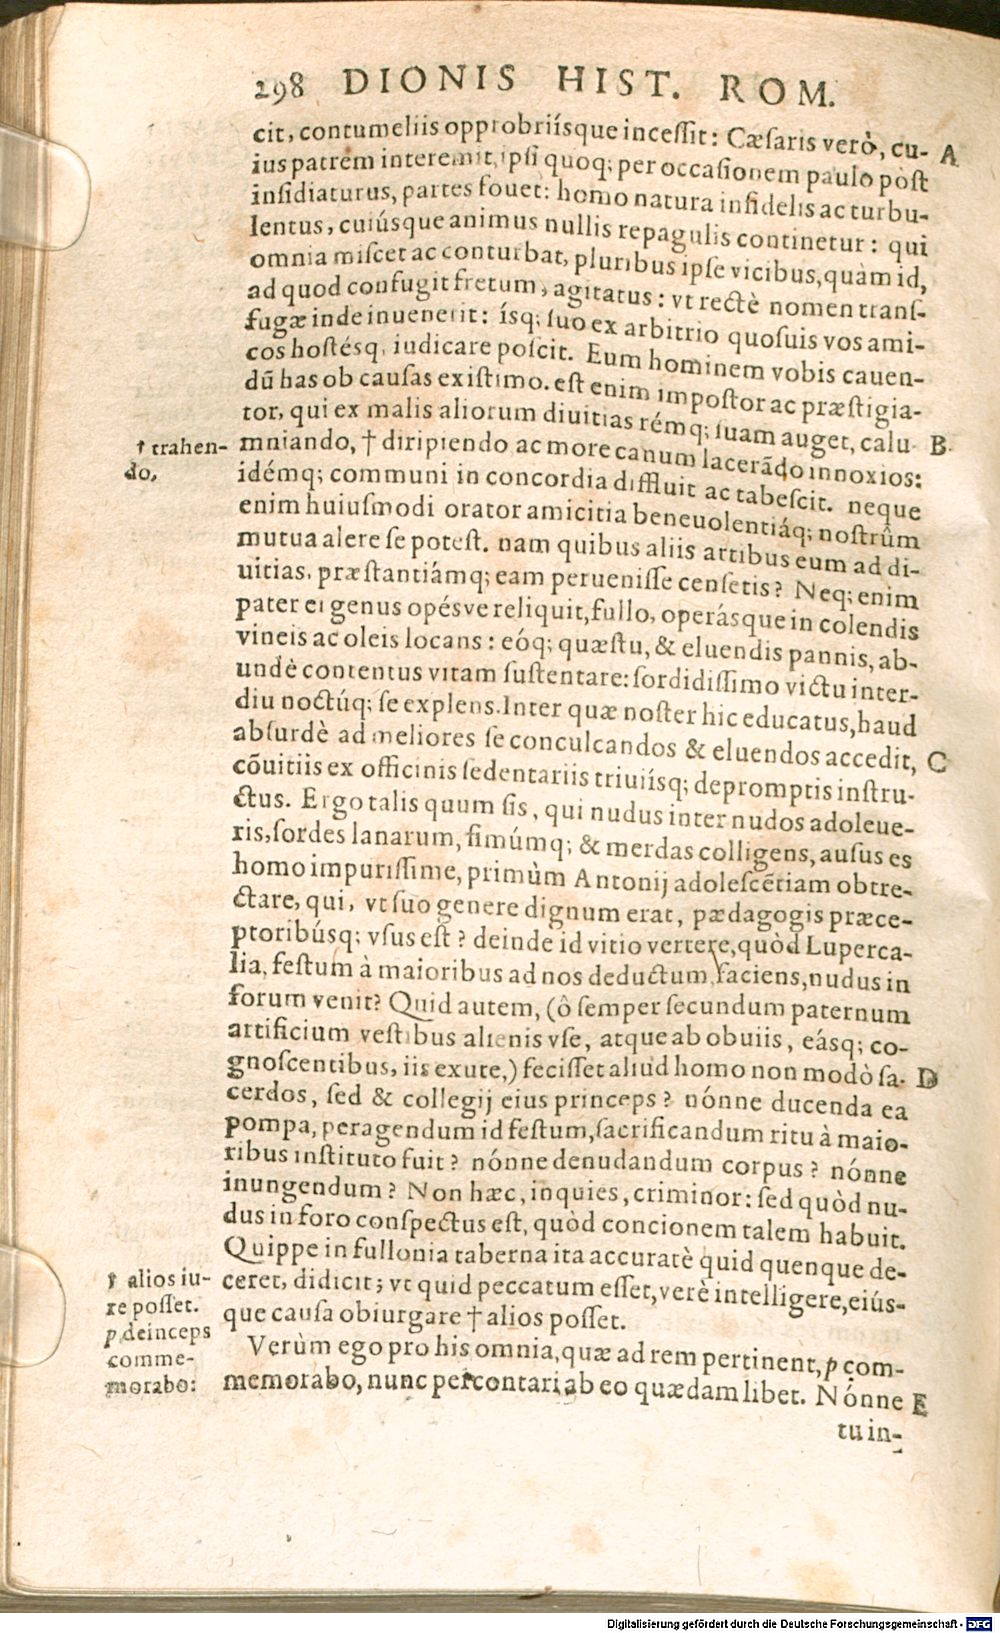 298 DIONIS HIST. ROM.
cit, contumeliis opprobriísque incessit: Cæsaris verò, cu- A
ius patrem interemit, ipsi quoq; per occasionem paulo pòst
insidiaturus, partes fouet: homo natura infidelis ac turbu-
lentus, cuiúsque animus nullis repagulis continetur: qui
omnia miscet ac conturbat, pluribus ipse vicibus, quàm id,
ad quod confugit fretum, agitatus: vt rectè nomen trans-
fugæ inde inuenerit: ísq; suo ex arbitrio quosuis vos ami-
cos hostésq, iudicare poscit. Eum hominem vobis cauen-
dũ has ob causas existimo. est enim impostor ac præstigia-
tor, qui ex malis aliorum diuitias rémq; suam auget, calu- B
mniando, † diripiendo ac more canum lacerãdo innoxios:
† trahen-
do,
idémq; communi in concordia diffluit ac tabescit. neque
enim huiusmodi orator amicitia beneuolentiáq; nostrûm
mutua alere se potest. nam quibus aliis artibus eum ad di-
uitias, præstantiámq; eam peruenisse censetis? Neq; enim
pater ei genus opésve reliquit, fullo, operásque in colendis
vineis ac oleis locans: eóq; quæstu, & eluendis pannis, ab-
undè contentus vitam sustentare: sordidissimo victu inter-
diu noctúq; se explens. Inter quæ noster hic educatus, haud
absurdè ad meliores se conculcandos & eluendos accedit, C
cõuitiis ex officinis sedentariis triuiísq; depromptis instru-
ctus. Ergo talis quum sis, qui nudus inter nudos adoleue-
ris, sordes lanarum, fimúmq; & merdas colligens, ausus es
homo impurissime, primùm Antonij adolescẽtiam obtre-
ctare, qui, vt suo genere dignum erat, pædagogis præce-
ptoribúsq; vsus est? deinde id vitio vertere, quòd Luperca-
lia, festum à maioribus ad nos deductum, faciens, nudus in
forum venit? Quid autem, (ô semper secundum paternum
artificium vestibus alienis vse, atque ab obuiis, eásq; co-
gnoscentibus, iis exute,) fecisset aliud homo non modò sa- D
cerdos, sed & collegij eius princeps? nónne ducenda ea
pompa, peragendum id festum, sacrificandum ritu à maio-
ribus instituto fuit? nónne denudandum corpus? nónne
inungendum? Non hæc, inquies, criminor: sed quòd nu-
dus in foro conspectus est, quòd concionem talem habuit.
Quippe in fullonia taberna ita accuratè quid quenque de-
ceret, didicit; vt quid peccatum esset, verè intelligere, eiús-
que causa obiurgare † alios posset.
† alios iu-
re posset.
p, deinceps
comme-
morabo:
Verùm ego pro his omnia, quæ ad rem pertinent, p com-
memorabo, nunc percontari ab eo quædam libet. Nónne E
tu in-
Digitalisierung gefördert durch die Deutsche Forschungsgemeinschaft - DFG